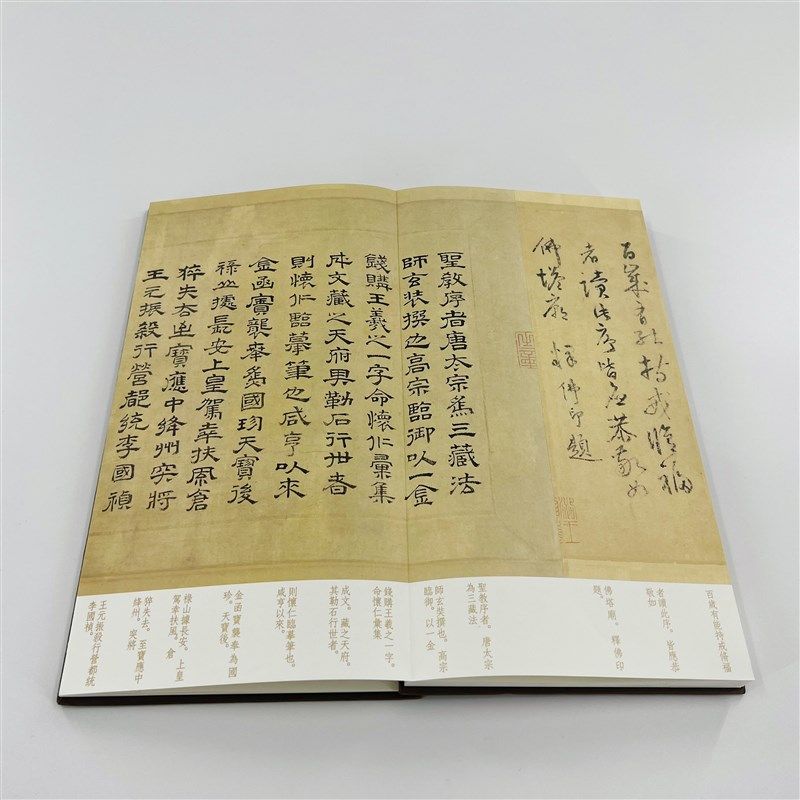 百歲有能持戒脩福
者讀此序皆應恭敬如
佛塔廟 釋佛印題
聖教序者唐太宗為三藏法
師玄奘撰也高宗臨御以一金
錢購王羲之一字命懷仁彙集
成文藏之天府其勒石行世者
則懷仁臨摹筆也咸亨以來
金函寶襲奉為國珍天寶後
祿山據長安上皇駕幸扶風倉
猝失去至寶應中絳州突將
王元振殺行營都統李國禎
百歲有能持戒脩福
者讀此序。皆應恭
敬如
佛塔廟。釋佛印
題。
聖教序者。唐太宗
為三藏法
師玄奘撰也。高宗
臨御。以一金
錢購王羲之一字。
命懷仁彙集
成文。藏之天府。
其勒石行世者。
則懷仁臨摹筆也。
咸亨以來。
金函寶襲奉為國
珍。天寶後。
祿山據長安。上皇
駕幸扶風。倉
猝失去。至寶應中
絳州。突將
王元振殺行營都統
李國禎。